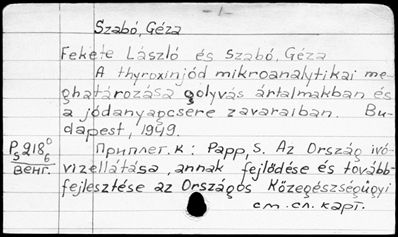 Szabó, Géza
Fekete László és Szabó, Géza
A thyroxinjód mikroanalytikai me-
ghatározása golyvás ártalmakban és
a jódanyagcsere zavaraiban. Bu-
dapest, 1949.
P 5 218 0/6
Венг.
Приплет. к: Papp, S. Az Ország ivó-
vizellátása, annak fejlődése és tovább-
fejlesztése az Országos Közegészségügyi
см. сл. карт.